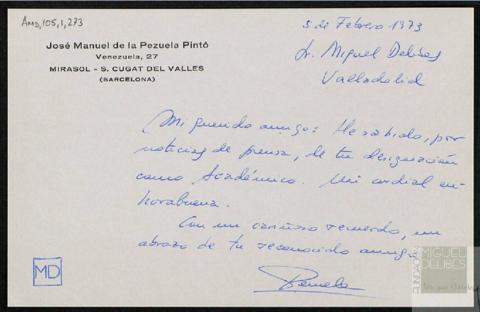 AMD,105,1,273
José Manuel de la Pezuela Pintó
Venezuela, 27
MIRASOL - S. CUGAT DEL VALLES
(BARCELONA)
5 de Febrero 1973
Sr. Miguel Delibes
Valladolid
Mi querido amigo: He sabido, por
noticias de prensa, de tu designación
como Académico. Mi cordial en-
horabuena.
Con un cariñoso recuerdo, un
abrazo de tu reconocido amigo
Pezuela
MD
FUNDACIÓN
MIGUEL
DELIBES